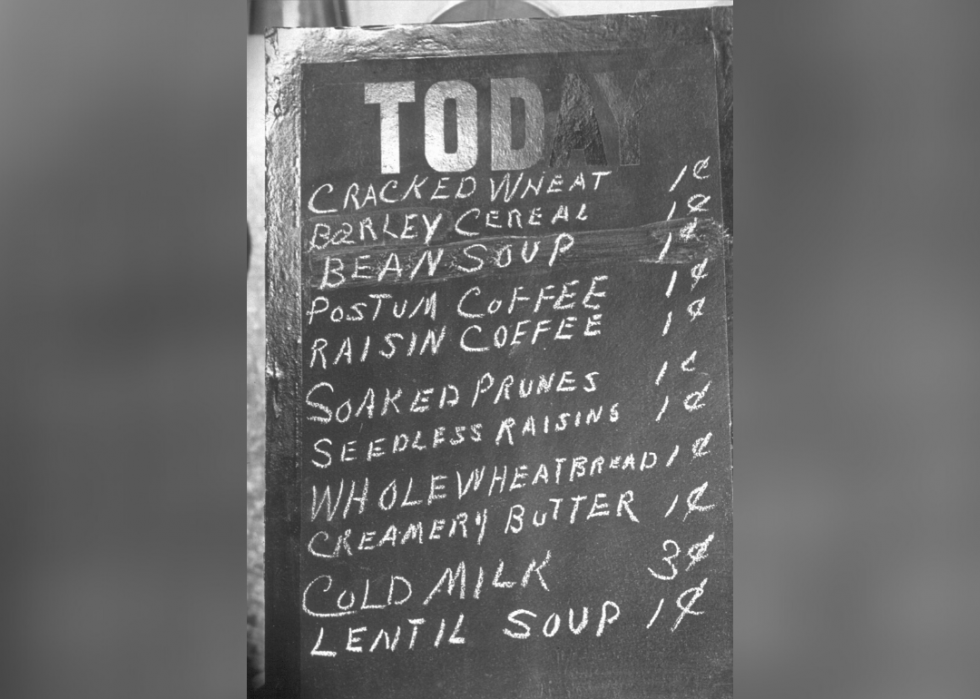 TODAY
CRACKED WHEAT 1¢
BARLEY CEREAL 1¢
BEAN SOUP 1¢
POSTUM COFFEE 1¢
RAISIN COFFEE 1¢
SOAKED PRUNES 1¢
SEEDLESS RAISINS 1¢
WHOLEWHEATBREAD 1¢
CREAMERY BUTTER 1¢
COLD MILK 3¢
LENTIL SOUP 1¢